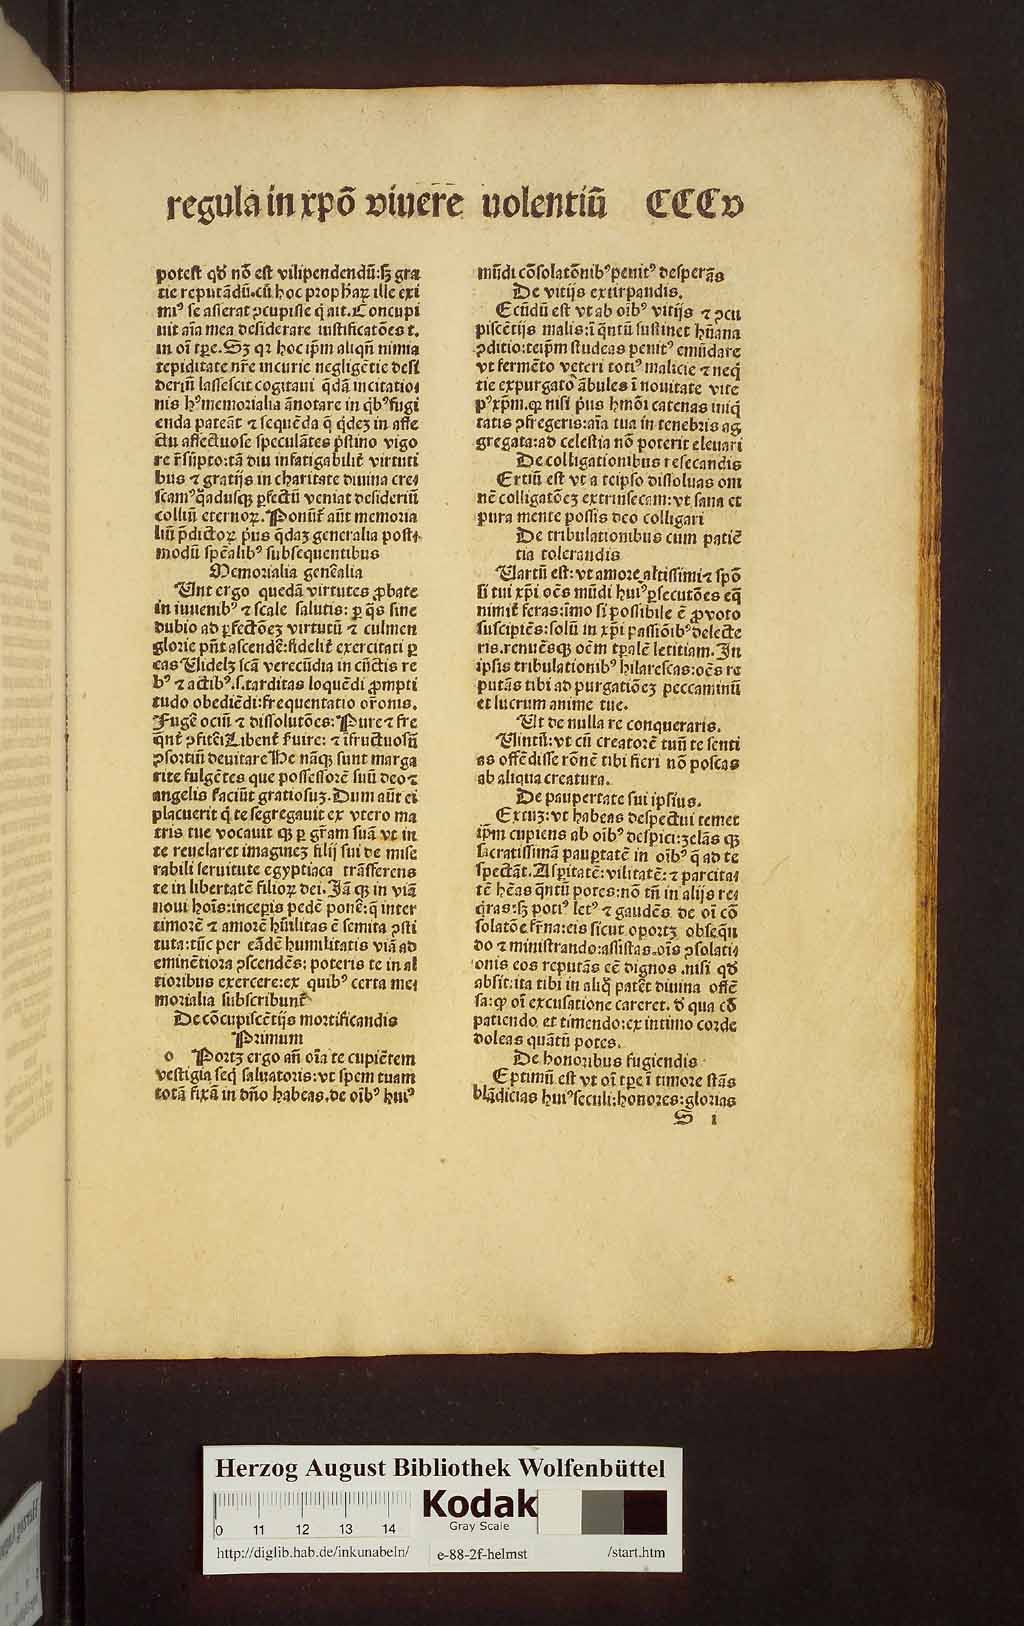 regula in xpō viuere uolentiū CCCv
potest qđ nō est vilipendendū:sꝫ gra
tie reputādū.cū hoc prophaꝝ ille exi
miꝰ se asserat ꝯcupisse q̇ ait.Concupi
uit aīa mea desiderare iustificatōes t.
in oī tꝑe.Sꝫ qꝛ hoc ip̄m aliqn̄ nimia
tepiditate nr̄e incurie negligētie desi
deriū lassescit cogitaui q̄dā incitatio⸗
nis hꝰ memorialia ānotare in qͥbꝰ fugi
enda pateāt ⁊ sequēda q̄ qͥdeꝫ in affe
ctu affectuose speculātes pͥstino vigo
re r̄sūpto:tā diu infatigabilit̄ virtuti
bus ⁊ gratijs in charitate diuina cres
scamꝰ q̄adusqꝫ ꝑfectū veniat desideriū
colliū eternoꝝ.Ponūt̄ aūt memoria
liū p̄dictoꝝ pͥus q̄daꝫ generalia post⸗
modū spēalibꝰ subsequentibus
Memorialia genēalia
Unt ergo quedā virtutes ꝓbate
in iuuenibꝰ ⁊ scale salutis: ꝑ q̄s sine
dubio ad ꝑfectōeꝫ virtutū ⁊ culmen
glorie pn̄t ascendē:fidelit̄ exercitati ꝑ
eas Uidelꝫ scā verecūdia in cūctis re
bꝰ ⁊ actibꝰ.s.tarditas loquēdi ꝓmpti
tudo obediēdi:frequentatio or̄onis.
Fugē ociū ⁊ dissolutōes:Pure ⁊ fre
q̄nt̄ ꝯfitēi Libent̄ s̄uire: ⁊ īfructuosū
ꝯsortiū deuitare He nāqꝫ sunt marga
rite fulgētes que possessorē suū deo ⁊
angelis faciūt gratiosuꝫ.Dum aūt ei
placuerit q̇ te segregauit ex vtero ma
tris tue vocauit qꝫ ꝑ gr̄am suā vt in
te reuelaret imagineꝫ filij sui de mise
rabili seruitute egyptiaca trāsferens
te in libertatē filioꝝ dei.Iā qꝫ in viā
noui hoīs:inceꝑis pedē ponē:q̄ inter
timorē ⁊ amorē hūilitas ē semita ꝯsti
tuta:tūc per eādē humilitatis viā ad
eminētiora ꝯscendēs: poteris te in al
tioribus exercere:ex quibꝰ certa me⸗
morialia subscribunt̄
De cōcupiscētijs mortificandis
Primum
o Portꝫ ergo an̄ oīa te cupiētem
vestigia seq̇ saluatoris:vt spem tuam
totā fixā in dn̄o habeas.de oībꝰ huiꝰ
mūdi cōsolatōnibꝰ penitꝰ desperās
De vitijs extirpandis.
Ecūdū est vt ab oībꝰ vitijs ⁊ ꝯcu
piscētijs malis:ī q̄ntū sustinet hūana
ꝯditio:teip̄m studeas penitꝰ emūdare
vt fermēto veteri totiꝰ malicie ⁊ neq̇
tie expurgato ābules ī nouitate vite
pꝰ xp̄m.qꝛ nisi pͥus hmōi catenas iniq̇
tatis ꝯfregeris:aīa tua in tenebris ag
gregata:ad celestia nō poterit eleuari
De colligationibus resecandis
Ertiū est vt a teipso dissoluas om
nē colligatōeꝫ extrinsecam:vt sana et
pura mente possis deo colligari
De tribulationibus cum patiē
tia tolerandis
Uartū est:vt amore altissimi ⁊ spō
si tui xp̄i oēs mūdi huiꝰ ꝑsecutōes eq̄
nimit̄ feras:īmo si possibile ē ꝓ voto
suscipiēs:solū in xp̄i passiōibꝰ delecte
ris.renuēsqꝫ oēm tꝑalē letitiam.In
ipsis tribulationibꝰ hilarescas:oēs re
putās tibi ad purgatiōeꝫ peccaminū
et lucrum anime tue.
Ut de nulla re conqueraris.
Uintū:vt cū creatorē tuū te senti
as offēdisse rōnē tibi fieri nō poscas
ab aliqua creatura.
De paupertate sui ipsius.
Extuꝫ:vt habeas despectui temet
ip̄m cupiens ab oībꝰ despici:zelās qꝫ
sacratissimā pauꝑtatē in oībꝰ q̄ ad te
spectāt.Asꝑitatē:vilitatē:⁊ parcita⸗
tē hēas q̄ntū potes:nō tn̄ in alijs re⸗
q̇ras:sꝫ potiꝰ letꝰ ⁊ gaudēs de oī cō
solatōe fr̄na:eis sicut oportꝫ obsequi
do ⁊ ministrando:assistas.oīs ꝯsolati⸗
onis eos reputās eē dignos .nisi qđ
absit:ita tibi in aliq̇ patēt diuina offē
sa:qꝙ oī excusatione careret. đ qua cō
patiendo et timendo:ex intimo corde
doleas quātū potes.
De honoribus fugiendis
Eptimū est vt oī tꝑe ī timore stās
blādicias huiꝰ seculi:honores:glorias
S 1
Herzog August Bibliothek Wolfenbüttel
0 11 12 13 14
Kodak
Gray Scale
http://diglib.hab.de/inkunabeln/ e-88-2f-helmst /start.htm